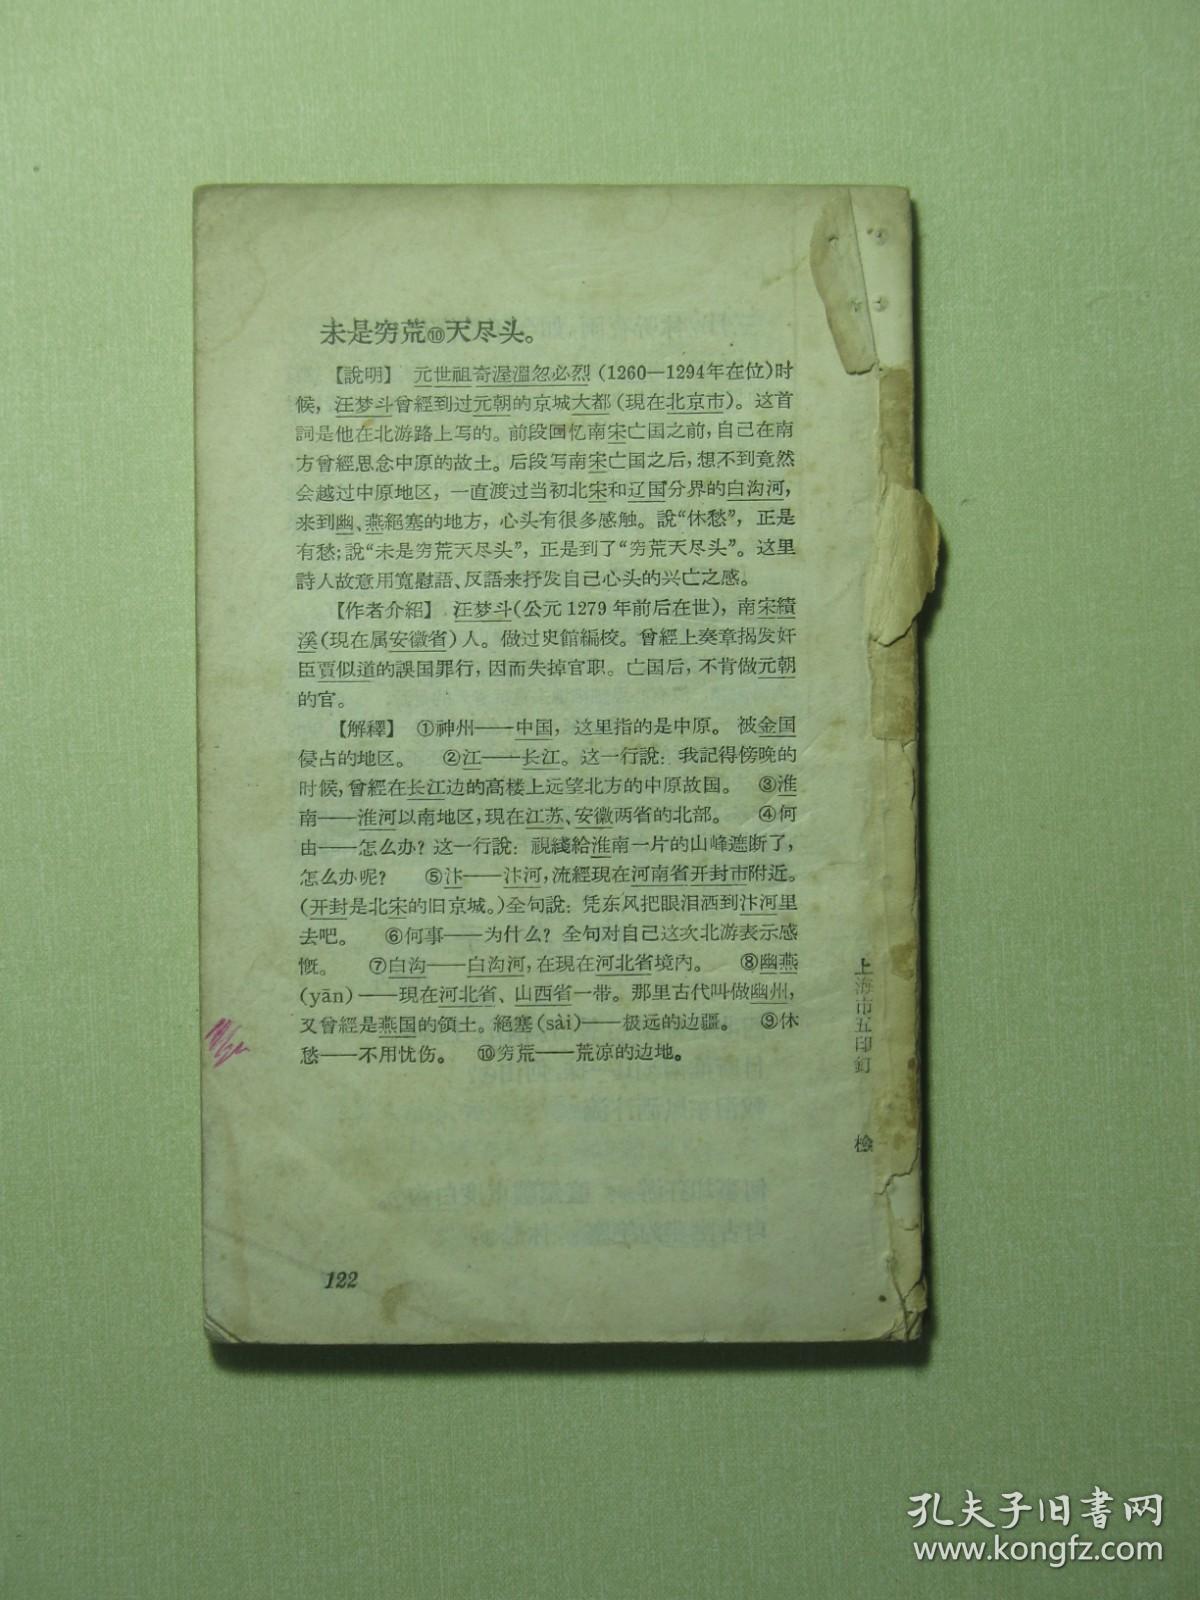 未是穷荒⑩天尽头。
【說明】 元世祖奇渥溫忽必烈(1260—1294年在位)时
候，汪梦斗曾經到过元朝的京城大都(現在北京市)。这首
詞是他在北游路上写的。前段回忆南宋亡国之前，自己在南
方曾經思念中原的故土。后段写南宋亡国之后，想不到竟然
会越过中原地区，一直渡过当初北宋和辽国分界的白沟河，
来到幽、燕絕塞的地方，心头有很多感触。說“休愁”，正是
有愁；說“未是穷荒天尽头”，正是到了“穷荒天尽头”。这里
詩人故意用寬慰語、反語来抒发自己心头的兴亡之感。
【作者介紹】 汪梦斗(公元1279年前后在世)，南宋績
溪(現在属安徽省)人。做过史館編校。曾經上奏章揭发奸
臣賈似道的誤国罪行，因而失掉官职。亡国后，不肯做元朝
的官。
【解釋】 ①神州——中国，这里指的是中原。被金国
侵占的地区。 ②江——长江。这一行說：我記得傍晚的
时候，曾經在长江边的高楼上远望北方的中原故国。 ③淮
南——淮河以南地区，現在江苏、安徽两省的北部。 ④何
由——怎么办？这一行說：視綫給淮南一片的山峰遮断了，
怎么办呢？ ⑤汴——汴河，流經現在河南省开封市附近。
(开封是北宋的旧京城。)全句說：凭东风把眼泪洒到汴河里
去吧。 ⑥何事——为什么？全句对自己这次北游表示感
慨。 ⑦白沟——白沟河，在現在河北省境內。 ⑧幽燕
(yān)——現在河北省、山西省一带。那里古代叫做幽州，
又曾經是燕国的領土。絕塞(sài)——极远的边疆。 ⑨休
愁——不用忧伤。 ⑩穷荒——荒凉的边地。
122
上海市五印訂 檢
孔夫子旧书网
www.kongfz.com